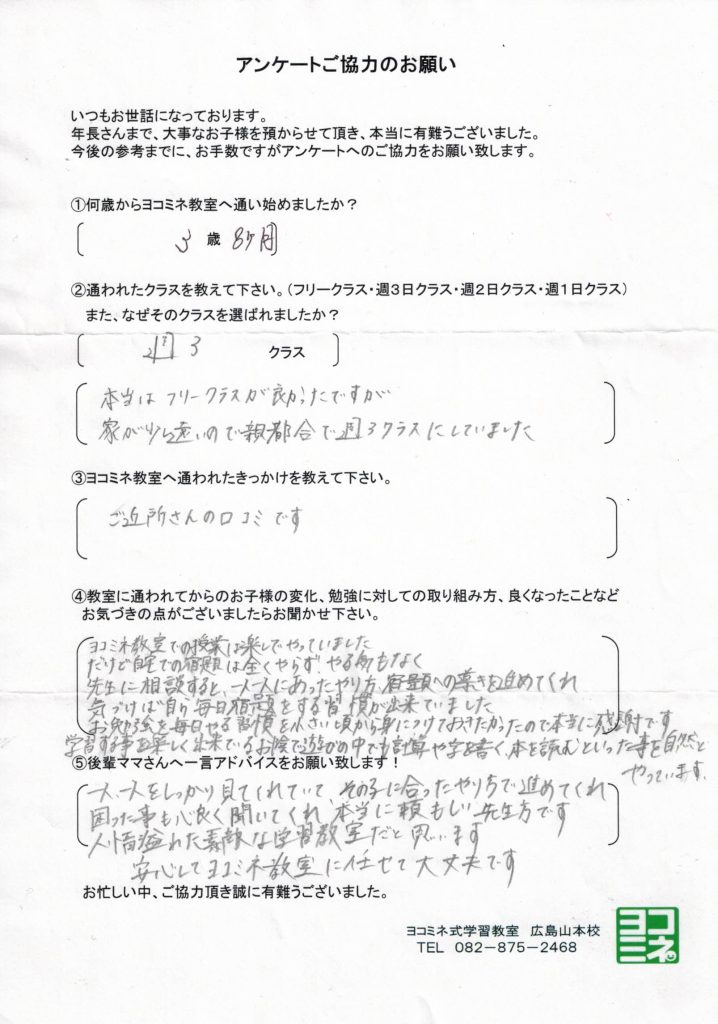 アンケートご協力のお願い
いつもお世話になっております。
年長さんまで、大事なお子様を預からせて頂き、本当に有難うございました。
今後の参考までに、お手数ですがアンケートへのご協力をお願い致します。
①何歳からヨコミネ教室へ通い始めましたか？
3 歳 8ヶ月
②通われたクラスを教えて下さい。（フリークラス・週３日クラス・週２日クラス・週１日クラス）
また、なぜそのクラスを選ばれましたか？
週3 クラス
本当は フリークラスが良かったですが
家が少し遠いので親都合で週3クラスにしていました
③ヨコミネ教室へ通われたきっかけを教えて下さい。
ご近所さんの口コミです
④教室に通われてからのお子様の変化、勉強に対しての取り組み方、良くなったことなど
お気づきの点がございましたらお聞かせ下さい。
ヨコミネ教室での授業は楽しんでやっていました
だけど自宅での宿題は全くやらず やる気もなく
先生に相談すると、一人一人にあったやり方、宿題への導きを進めてくれ
気づけば自ら毎日宿題をする習慣が出来ていました
お勉強を毎日やる習慣を小さい頃から身につけておきたかったので本当に感謝です
学習する事を楽しく出来ているお陰で遊びの中でも計算や字を書く、本を読むといった事を自然と
やっています。
⑤後輩ママさんへ一言アドバイスをお願い致します！
一人一人をしっかり見てくれていて、その子に合ったやり方で進めてくれ
困った事も心良く聞いてくれ、本当に頼もしい先生方です
人情溢れた素敵な学習教室だと思います
安心してヨコミネ教室に任せて大丈夫です
お忙しい中、ご協力頂き誠に有難うございました。
ヨコミネ式学習教室　広島山本校
TEL　082－875－2468
ヨコ
ミネ